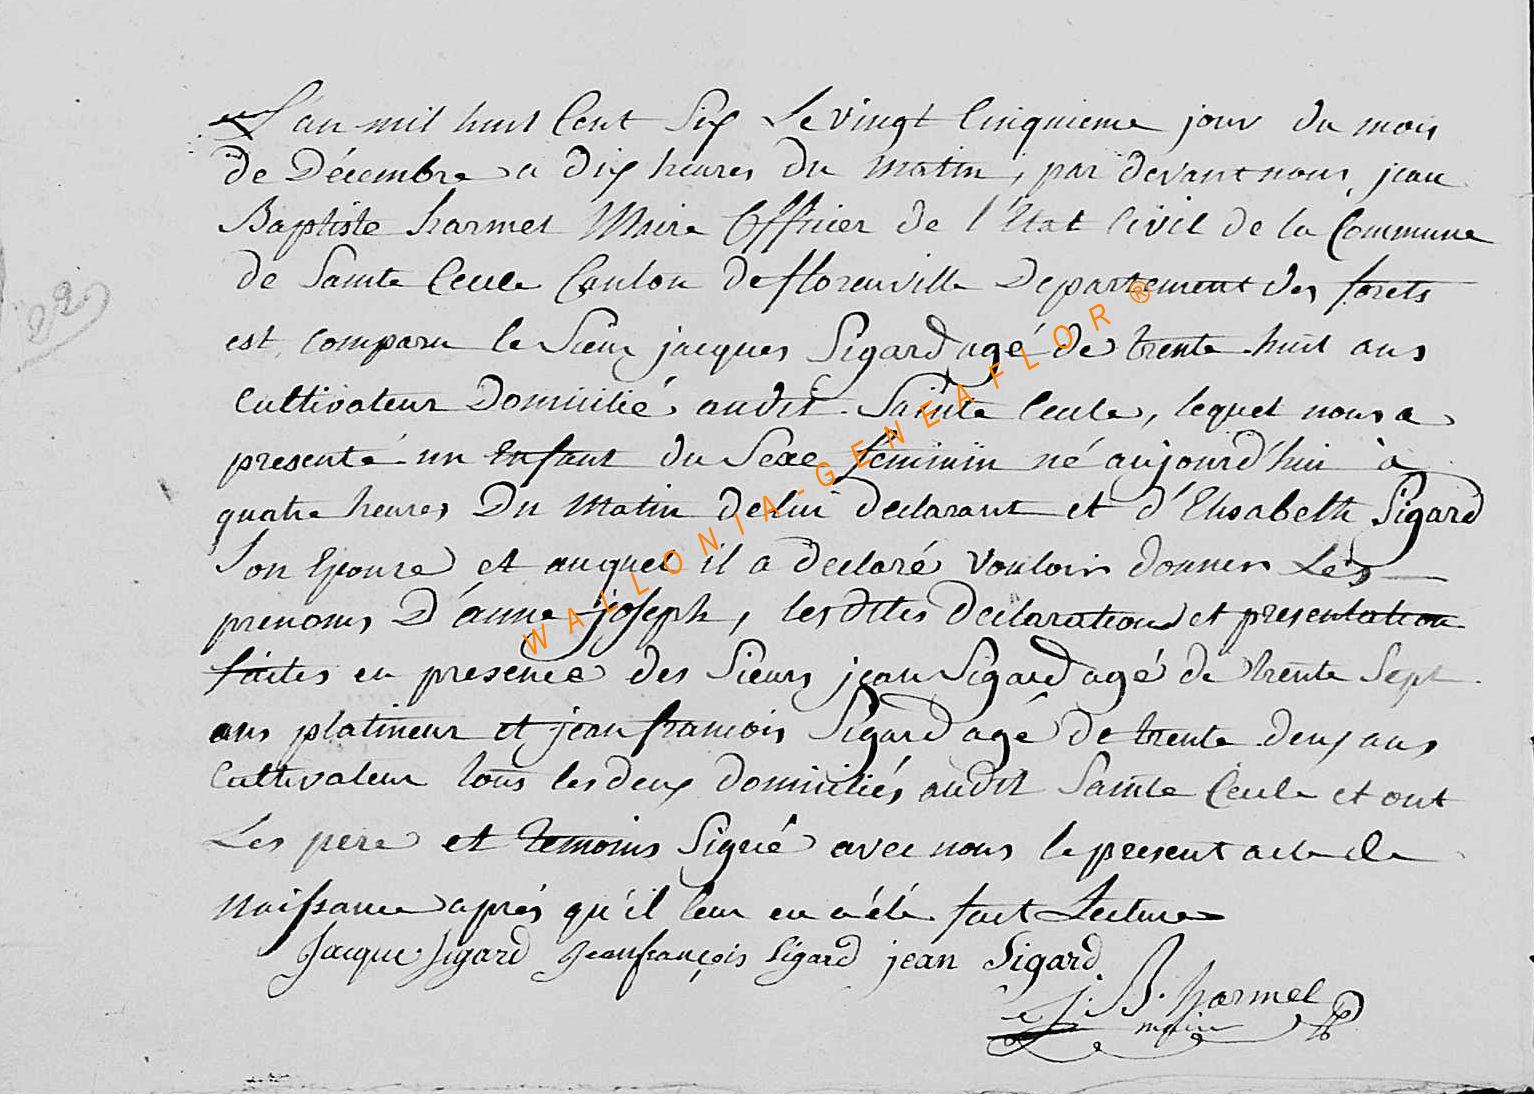 L'an mil huit Cent Six Le vingt Cinquieme jour du mois
de Décembre a dix heures du matin, par devant nous, jean
Baptiste harmel Maire Officier de l'Etat Civil de la Commune
22
de Sainte Cecile Canton de florenville Departement des forets
est comparu le Sieur jacques Sigard agé de trente huit ans
Cultivateur Domicilié audit Sainte Cecile, lequel nous a
presenté un Enfant du Sexe feminin né aujourd'hui à
quatre heures Du Matin de lui declarant et d'Elisabeth Sigard
Son Epouse et auquel il a declaré vouloir donner Les
prenoms D'anne joseph, les dites declaration et presentation
faites en presence des Sieurs jean Sigard agé de trente Sept
ans platineur et jean francois Sigard agé de trente deux ans
Cultivateur tous les deux domiciliés audit Sainte Cecile et ont
Les pere et temoins Signé avec nous le present acte de
Naissance aprés qu'il leur en a été fait Lecture
Jacque Sigard Jeanfrançois Sigard jean Sigard
J. B. harmel
maire
WALLONIA-GENEAFLOR ®